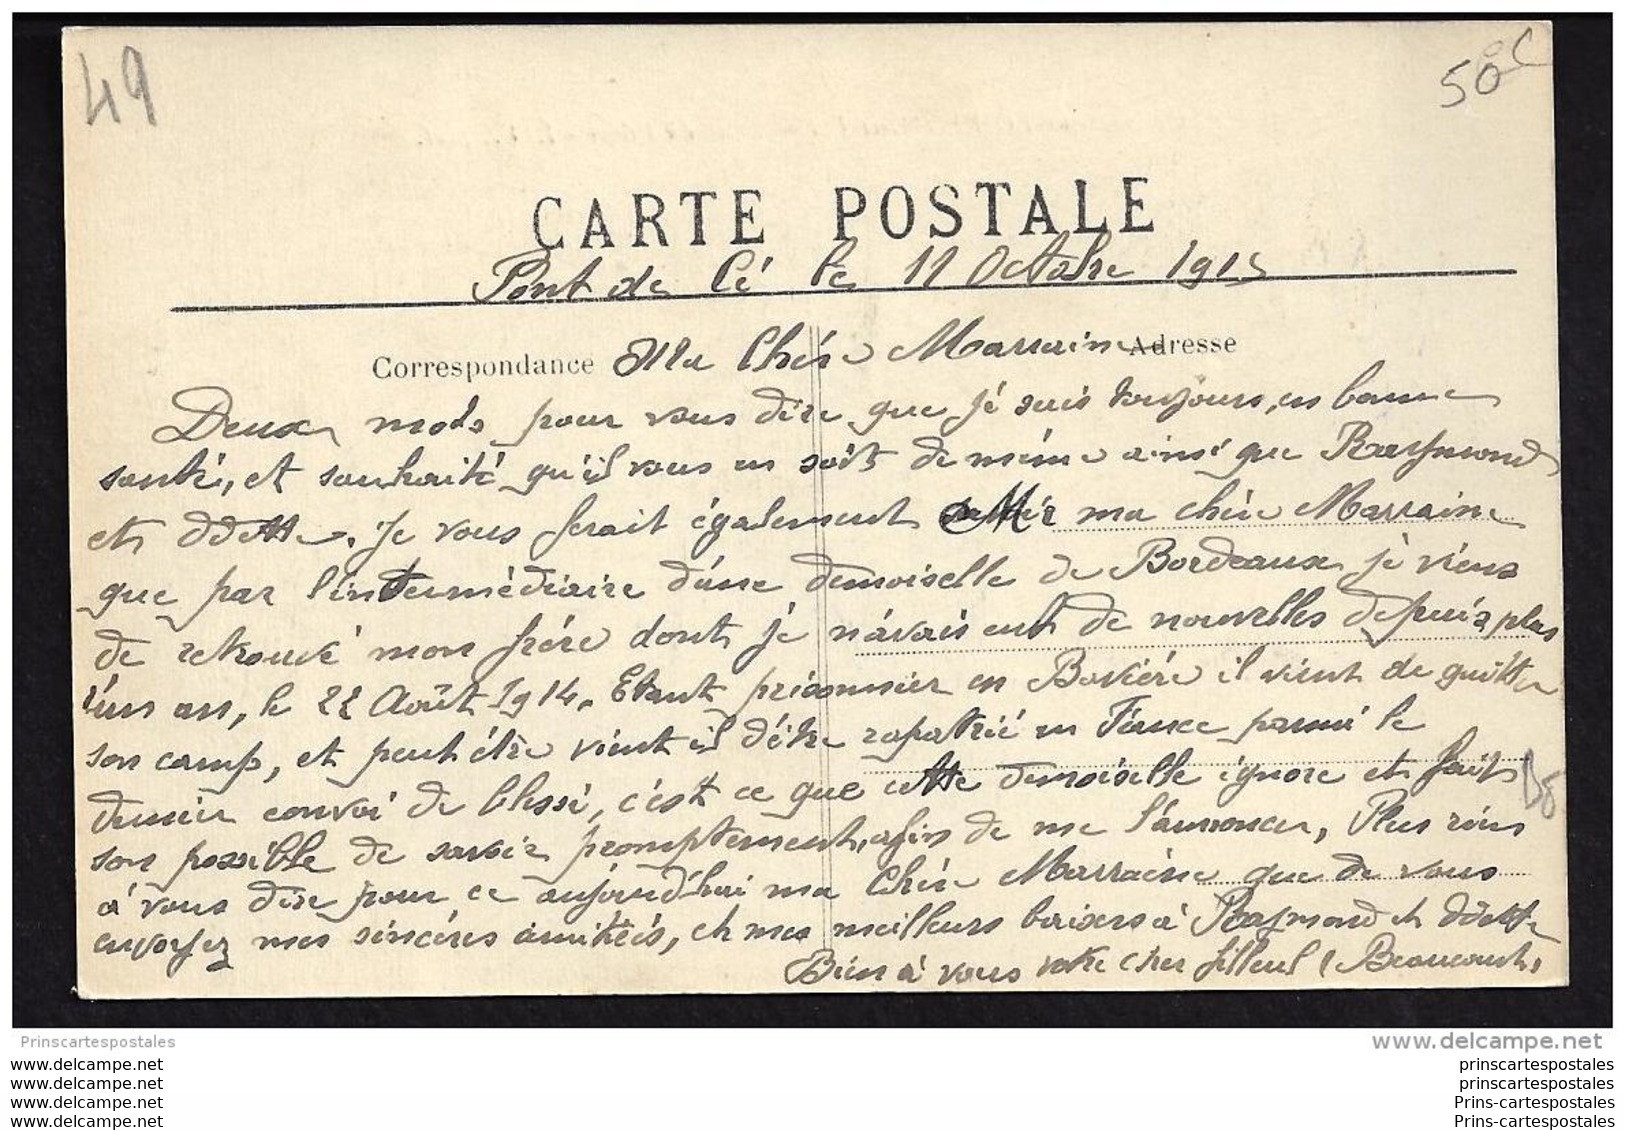 49
50 c
CARTE POSTALE
Pont de Cé le 11 Octobre 1915
Correspondance Ma Chére Marraine Adresse
Deux mots pour vous dire que je suis toujours, en bonne
santé, et souhaité qu'il vous en soit de même ainsi que Raymond
et Odette. Je vous ferait également ma chére Marraine
que par l'intermédiaire d'une demoiselle de Bordeaux je viens
de retrouvé mon frére dont je n'avais eut de nouvelles depuis plus
d'un an, le 22 Août 1914. Etant prisonnier en Baviére il vient de quitter
son camp, et peut étre vient il d'étre rapatrié en France parmi le
dernier convoi de blessé, c'est ce que cette demoiselle ignore et fait
son possible de savoir promptement, afin de me l'annoncer, Plus rien
á vous dire pour ce aujourd'hui ma Chére Marraine que de vous
envoyez mes sincéres amitiés, et mes meilleurs baisers á Raymond et Odette
Bien á vous votre cher filleul (Beaucourt)
Prinscartespostales
www.delcampe.net
www.delcampe.net
www.delcampe.net
www.delcampe.net
www.delcampe.net
prinscartespostales
prinscartespostales
Prins-cartespostales
Prins-cartespostales